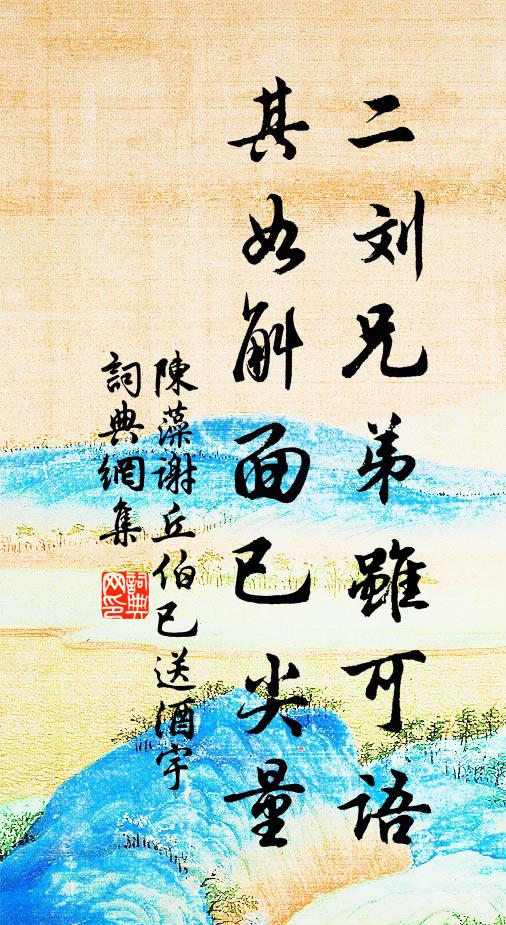 二刘兄弟雖可語
其如斛面已尖量
陳藻謝丘伯已送酒宇
詞典網集
詞典网印